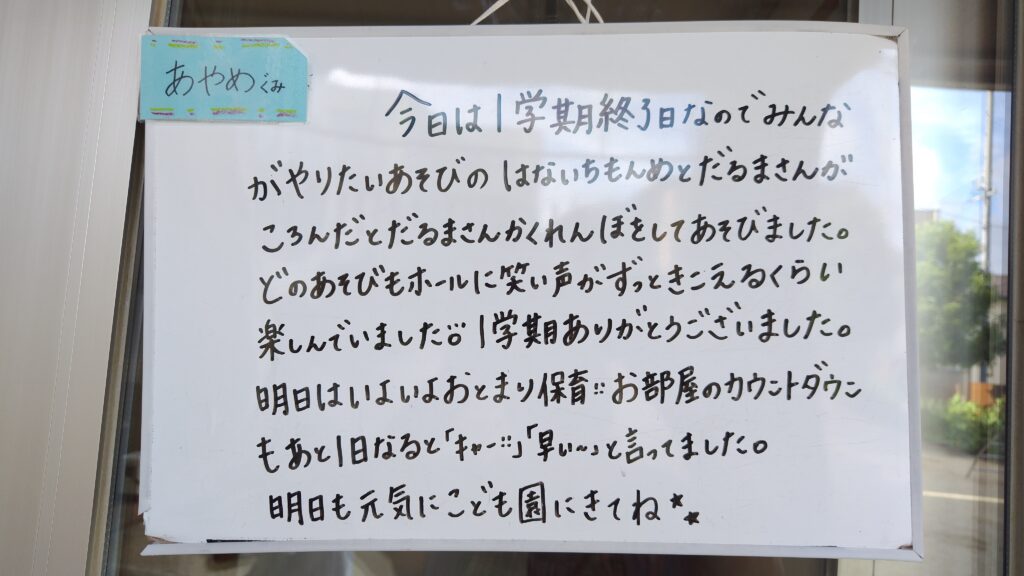 あやめぐみ
今日は1学期終了日なのでみんな
がやりたいあそびの はないちもんめとだるまさんが
ころんだとだるまさんかくれんぼをしてあそびました。
どのあそびもホールに笑い声がずっときこえるくらい
楽しんでいました!! 1学期ありがとうございました。
明日はいよいよおとまり保育!! お部屋のカウントダウン
もあと1日なると「キャー!!」「早い〜」と言ってました。
明日も元気にこども園にきてね★★